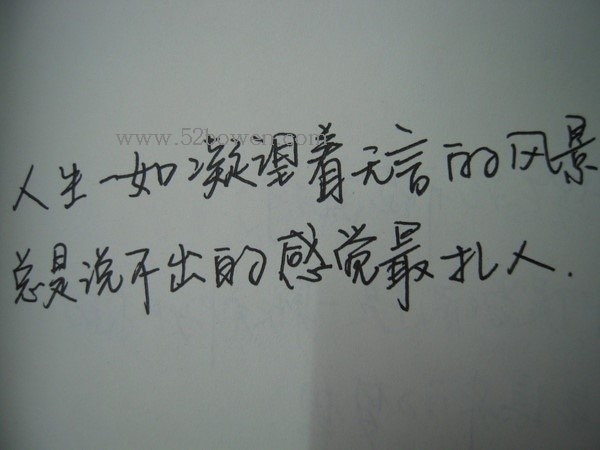 www.52bowen.com
人生一如凝望着无言的风景
总是说不出的感觉最扎人.